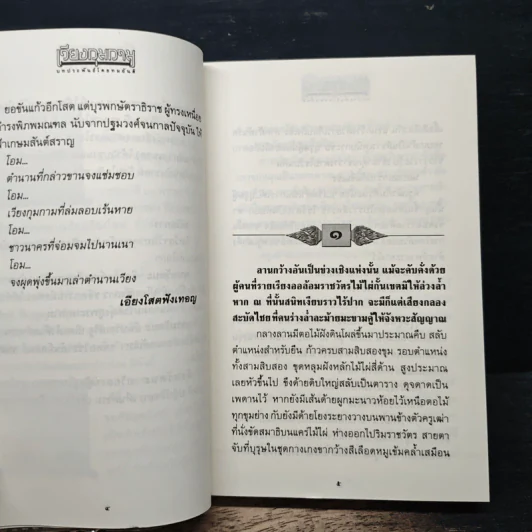 เวียงกุมกาม
บทประพันธ์โดยทมยันตี
ยอขันแก้วอีกโสต แด่บุรพกษัตราธิราช ผู้ทรงเหนือ
ดำรงพิภพมณฑล นับจากปฐมวงศ์จนกาลปัจจุบัน ให้
สำเกษมสันต์สราญ
โอม...
ตำนานที่กล่าวขานจงแซ่มซอบ
โอม...
เวียงกุมกามที่ล่มลอบเร้นหาย
โอม...
ชาวนาครที่จ่อมจมไปนานเนา
โอม...
จงผุดพุ่งขึ้นมาเล่าตำนานเวียง
เอียงโสตฟังเทอญ
๔
๑
ลานกว้างอันเป็นข่วงเชิงแห่งนั้น แม้จะคับคั่งด้วย
ผู้คนที่รายเรียงออล้อมราชวัตรไม้ไผ่กั้นเขตมิให้ล่วงล้ำ
หาก ณ ที่นั้นสนิทเงียบราวไร้ปาก จะมีก็แต่เสียงกลอง
สะบัดไชยที่คนร่างล่ำละม้ายมะขามคู้ให้จังหวะสัญญาณ
กลางลานมีตอไม้ฝังดินโผล่ขึ้นมาประมาณคืบ สลับ
ตำแหน่งสำหรับยืน ก้าวครบสามสิบสองขุม รอบตำแหน่ง
ทั้งสามสิบสอง ขุดหลุมฝังหลักไม้ไผ่สี่ด้าน สูงประมาณ
เลยหัวขึ้นไป ขึงด้ายดิบใหญ่สลับเป็นตาราง ดุจดาดเป็น
เพดานไว้ หากยังมีเส้นด้ายผูกมะนาวห้อยไว้เหนือตอไม้
ทุกขุมย่าง กับยังมีด้ายโยงระยางวางบนพานข้างตัวครูเฒ่า
ที่นั่งขัดสมาธิบนแคร่ไม้ไผ่ ห่างออกไปริมราชวัตร สายตา
จับที่บุรุษในชุดกางเกงขากว้างสีเลือดหมูเข้มคล้ำเสมือน
๕